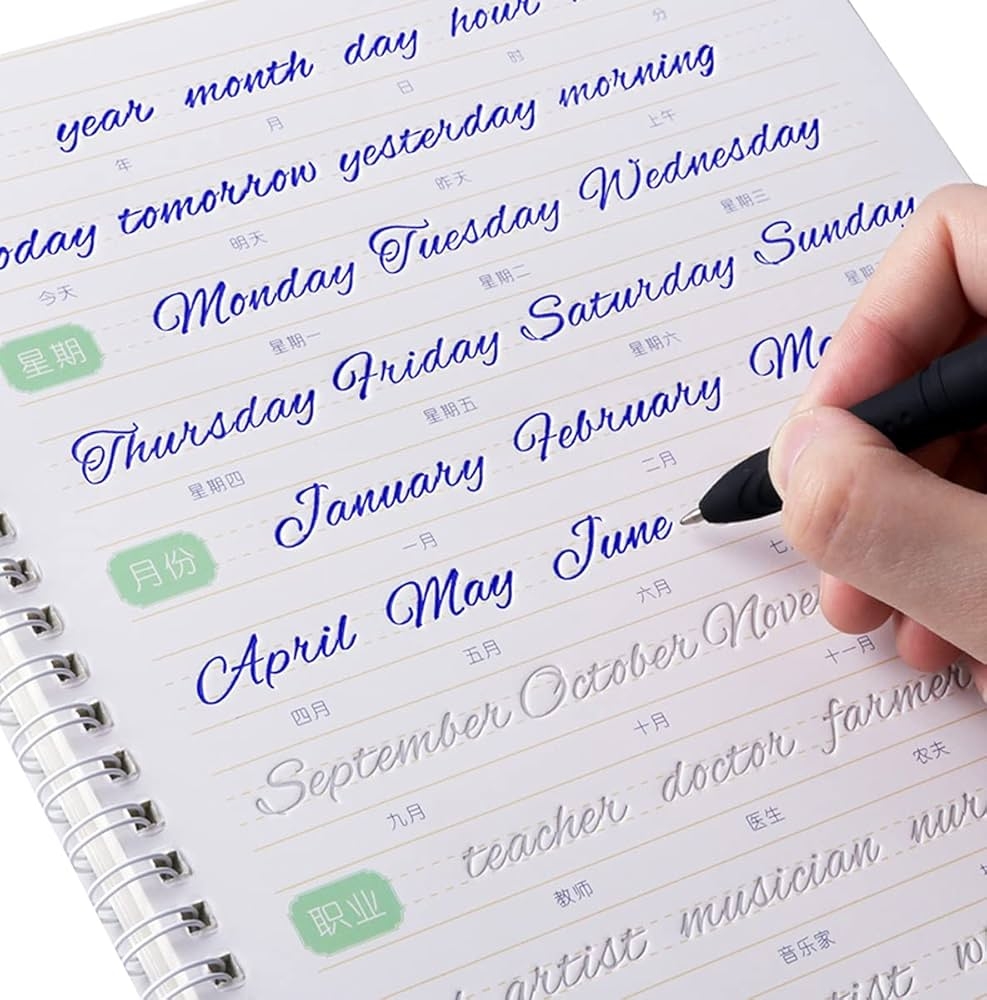 year month day hour
年 月 日 时 分
tomorrow yesterday morning
今天 明天 昨天 上午
星期 Monday Tuesday Wednesday
星期一 星期二 星期三
Thursday Friday Saturday Sunday
星期四 星期五 星期六
月份 January February
一月 二月
April May June
四月 五月 六月
September October
九月 十月 十一月
职业 teacher doctor farmer
教师 医生 农夫
artist musician
音乐家